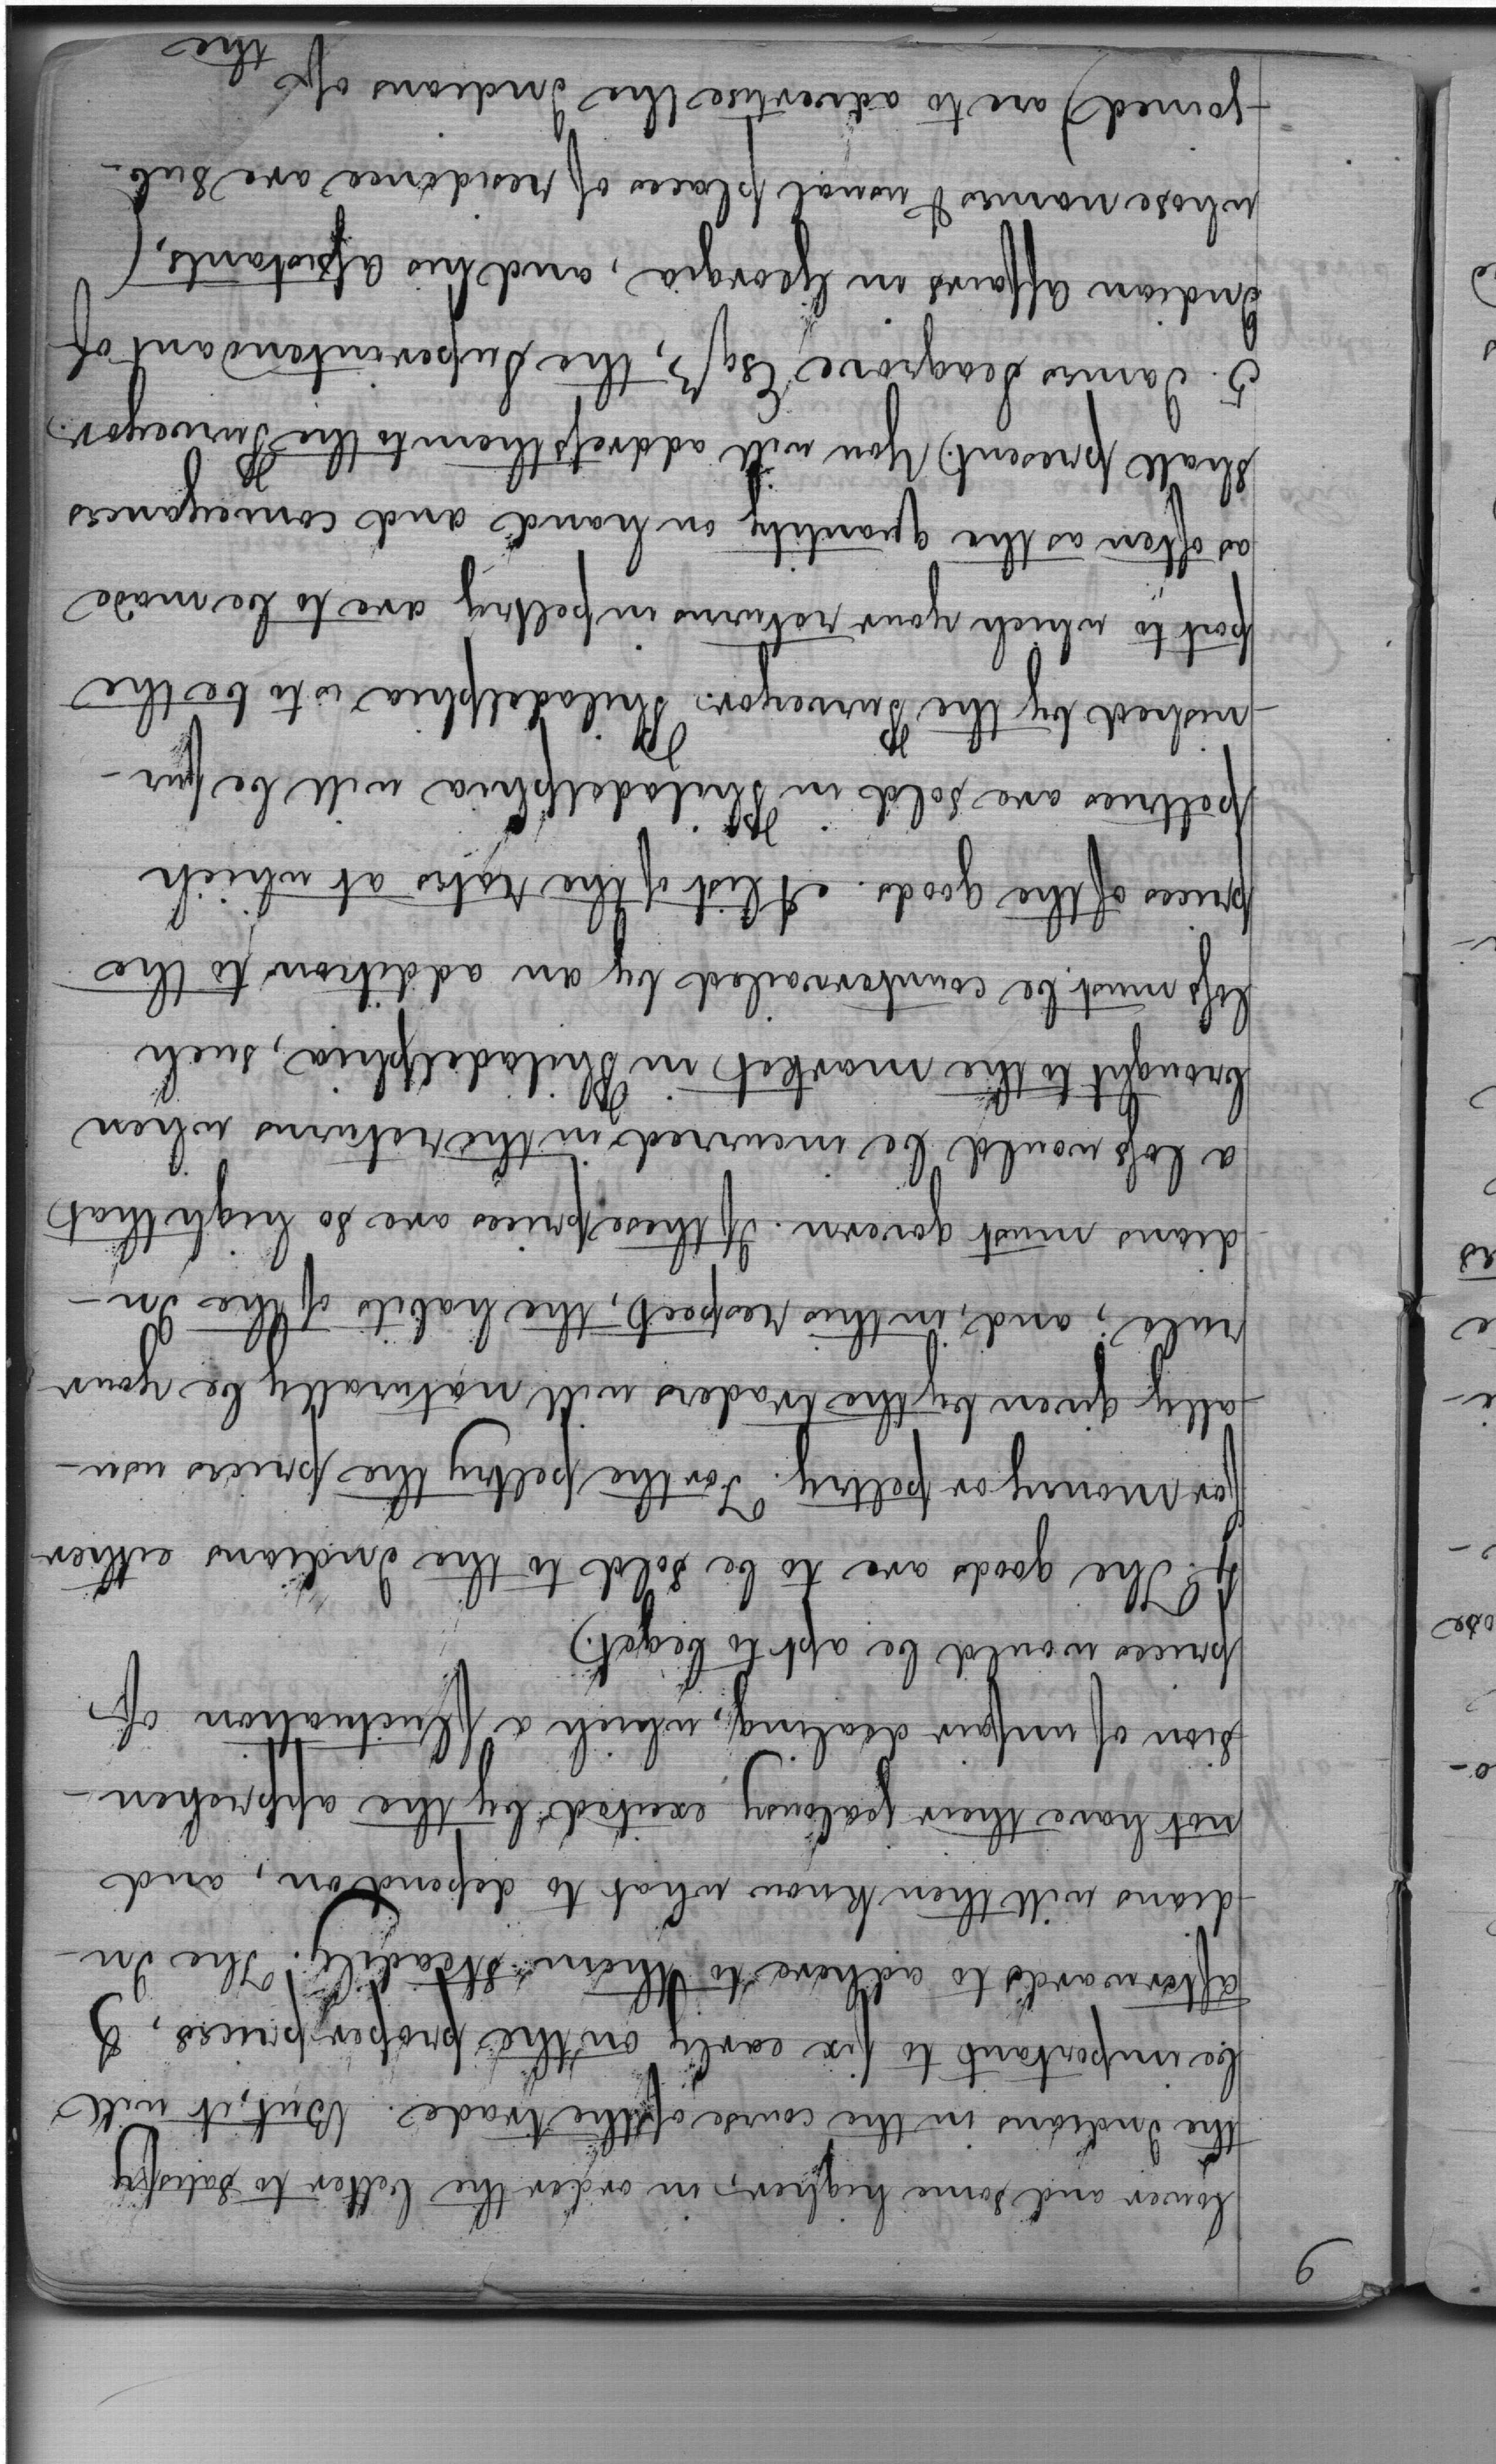 6
lower and some higher, in order the better to satisfy
the Indians in the course of the trade. But, it will
be important to fix early on the proper prices, &
afterwards to adhere to them steadily. The In-
dians will then know what to depend on, and
not have their jealousy excited by the apprehen-
sion of unfair dealing, which a fluctuation of
prices would be apt to beget.)
4. The goods are to be sold to the Indians either
for money or peltry. For the peltry the prices usu-
ally given by the traders will naturally be your
rule; and, in this respect, the habits of the In-
dians must govern. If these prices are so high that
a loss would be incurred in the returns when
brought to the market in Philadelphia, such
loss must be countervailed by an addition to the
prices of the goods. A list of the rates at which
peltries are sold in Philadelphia will be fur-
nished by the Purveyor. Philadelphia is to be the
port to which your returns in peltry are to be made
as often as the quantity on hand and conveyances
shall present.) You will address them to the Purveyor.)
5. James Seagrove Esqr., the Superintendant of
Indian Affairs in Georgia, and his assistants, (
whose names & usual places of residence are sub-
joined) are to advertise the Indians of
the